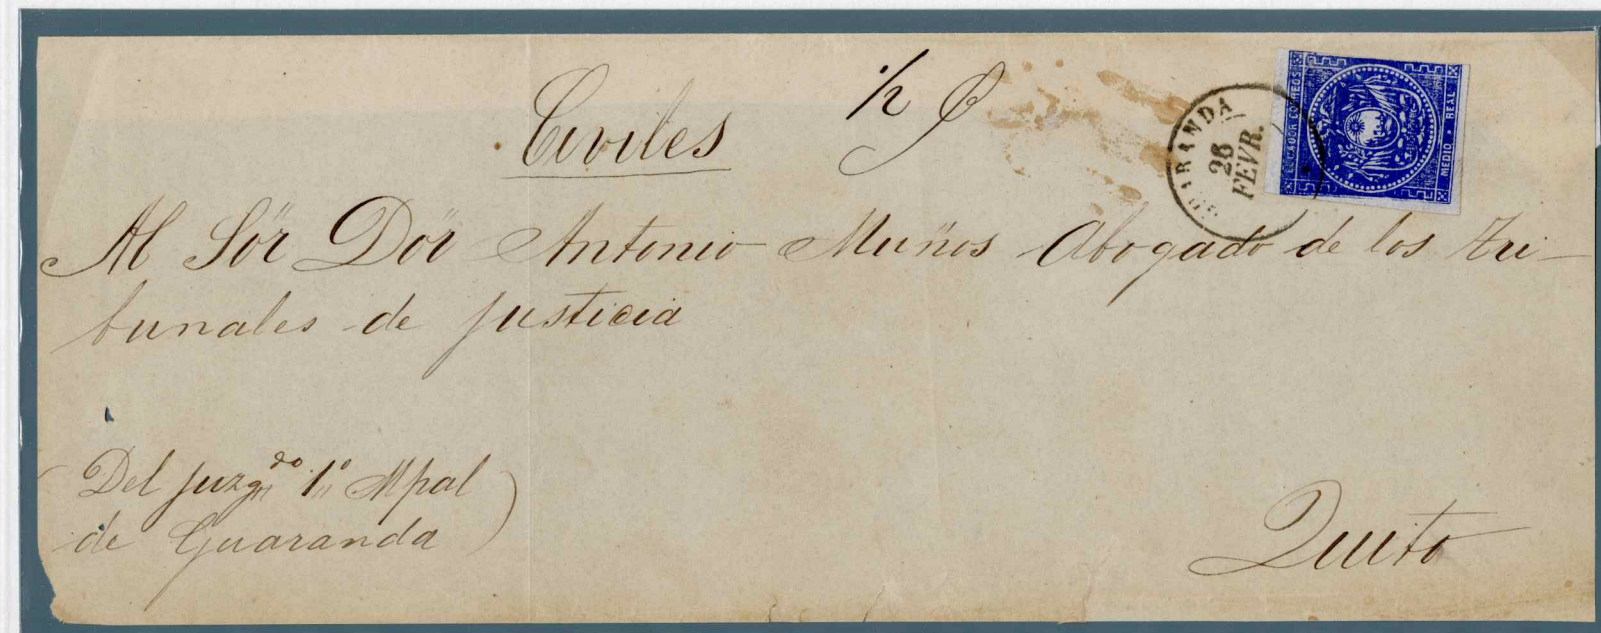 Civiles
1/2
GUARANDA
26
FEVR.
ECUADOR CORREOS
MEDIO * REAL
Al Sör Dör Antonio Muños Abogado de los Tri-
bunales de justicia
(Del juzgdo 1º Mpal
de Guaranda)
Quito